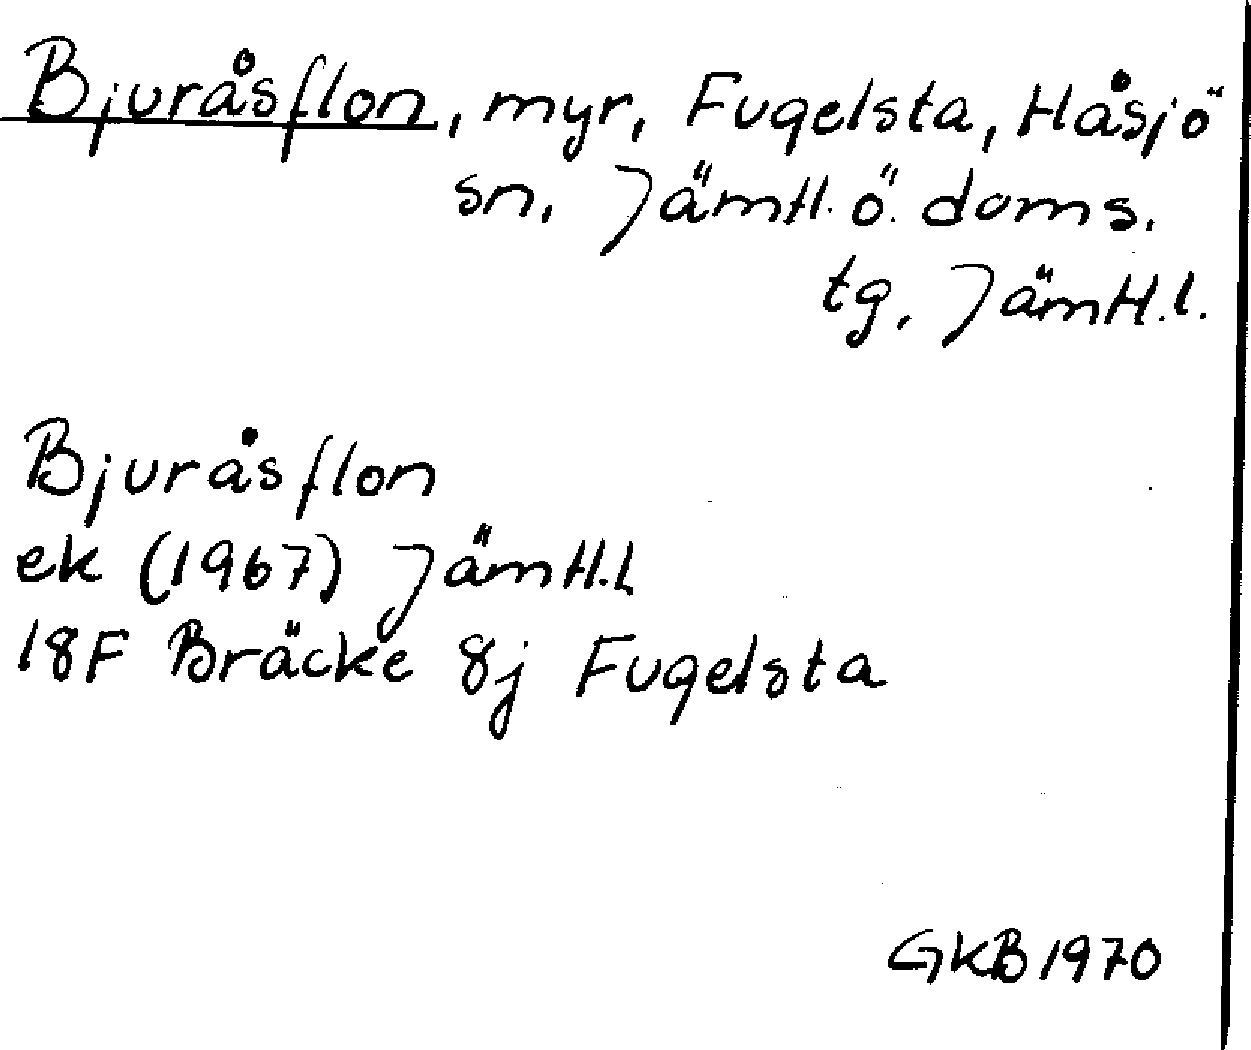 Bjuråsflon, myr, Fugelsta, Håsjö
sn, Jämtl. ö. doms.
tg, Jämtl.l.
Bjuråsflon
ek (1967) Jämtl.l
18F Bräcke 8j Fugelsta
GKB 1970